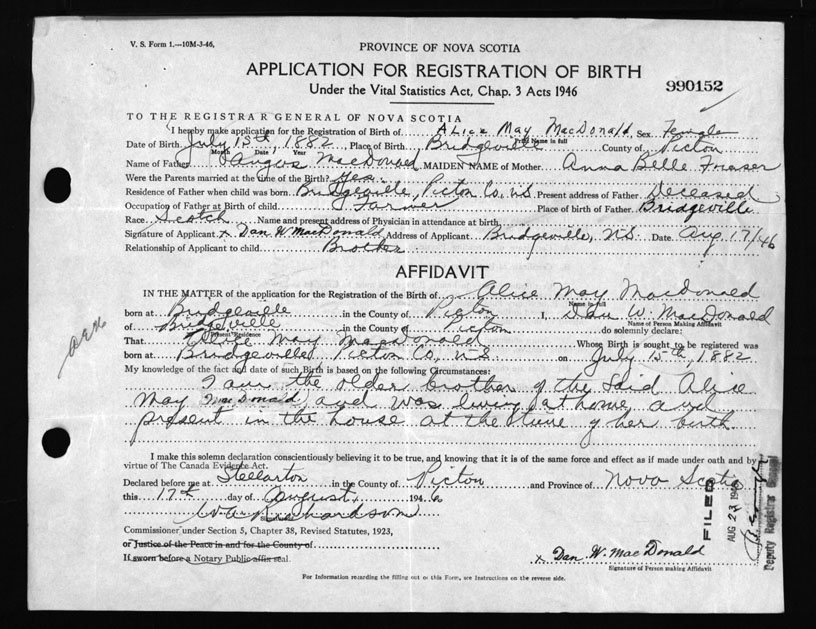 V. S. Form 1.—10M-3-46.
PROVINCE OF NOVA SCOTIA
APPLICATION FOR REGISTRATION OF BIRTH
Under the Vital Statistics Act, Chap. 3 Acts 1946
990152
TO THE REGISTRAR GENERAL OF NOVA SCOTIA
I hereby make application for the Registration of Birth of Alice May MacDonald, Sex Female
Print Name in full
Date of Birth July 15th, 1882 Place of Birth Bridgeville County of Pictou
Month Date Year
Name of Father Angus MacDonald MAIDEN NAME of Mother Anna Belle Fraser
Were the Parents married at the time of the Birth? Yes.
Residence of Father when child was born Bridgeville, Pictou Co, N.S. Present address of Father Deceased
Occupation of Father at Birth of child Farmer Place of birth of Father Bridgeville
Race Scotch Name and present address of Physician in attendance at birth
Signature of Applicant x Dan W. MacDonald Address of Applicant Bridgeville, N.S. Date Aug 17/46
Relationship of Applicant to child Brother
AFFIDAVIT
IN THE MATTER of the application for the Registration of the Birth of Alice May MacDonald
Name in full
born at Bridgeville in the County of Pictou I, Dan W. MacDonald
Name of Person Making Affidavit
of Bridgeville in the County of Pictou do solemnly declare:
Present Residence
That Alice May MacDonald Whose Birth is sought to be registered was
born at Bridgeville Pictou Co, N.S. on July 15th, 1882
My knowledge of the fact and date of such Birth is based on the following Circumstances:
I am the older brother of the said Alice
May MacDonald and was living at home and
present in the house at the time of her birth
I make this solemn declaration conscientiously believing it to be true, and knowing that it is of the same force and effect as if made under oath and by
virtue of The Canada Evidence Act.
Declared before me at Stellarton in the County of Pictou and Province of Nova Scotia
this 17th day of August, 1946
Richardson
Commissioner under Section 5, Chapter 38, Revised Statutes, 1923,
or Justice of the Peace in and for the County of
If sworn before a Notary Public affix seal.
x Dan W. MacDonald
Signature of Person making Affidavit
For Information regarding the filling out of this Form, see Instructions on the reverse side.
FILED
AUG 23 1946
Deputy Registrar General